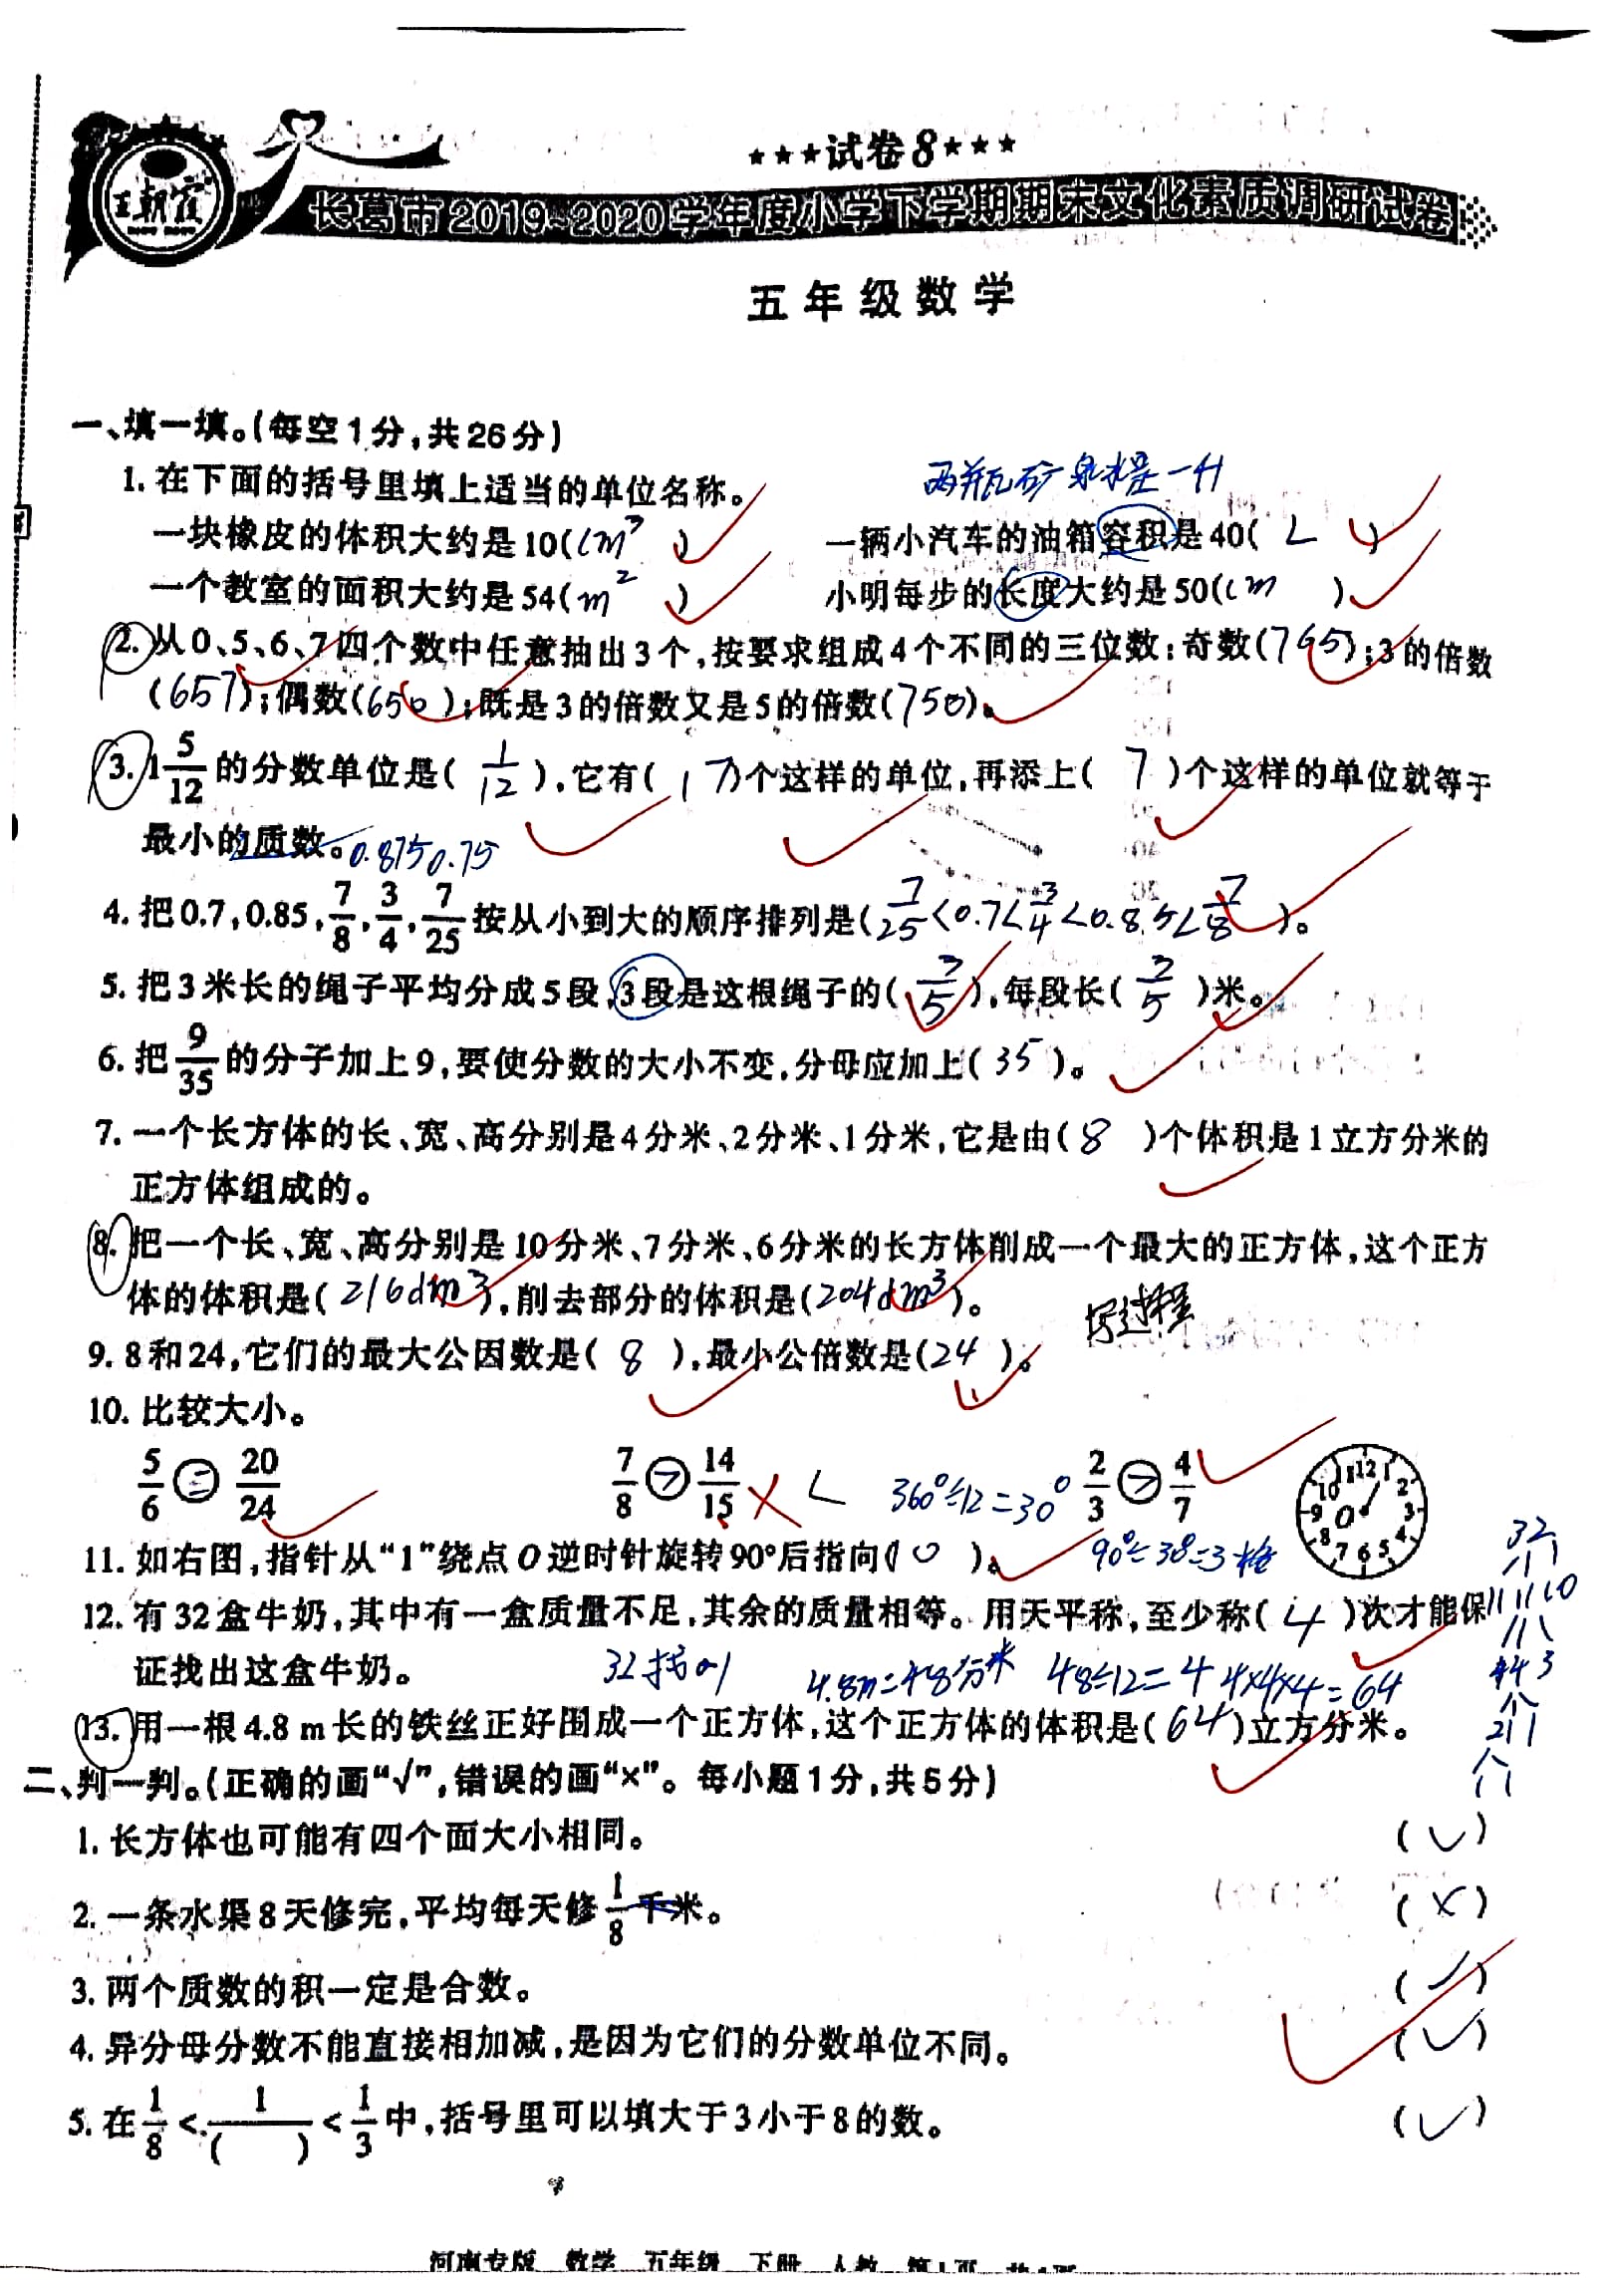 ★★★试卷8★★★
王朝霞
长葛市2019-2020学年度小学下学期期末文化素质调研试卷
五年级数学
一、填一填。(每空1分,共26分)
两瓶矿泉水是一升
1. 在下面的括号里填上适当的单位名称。
一块橡皮的体积大约是10(cm³) 一辆小汽车的油箱容积是40( L )
一个教室的面积大约是54(m²) 小明每步的长度大约是50(cm)
2. 从0、5、6、7四个数中任意抽出3个,按要求组成4个不同的三位数:奇数(765);3的倍数
(657);偶数(650);既是3的倍数又是5的倍数(750)。
3. 1 5/12 的分数单位是( 1/12 ),它有( 17 )个这样的单位,再添上( 7 )个这样的单位就等于
最小的质数。
0.875 0.75
4. 把0.7,0.85,7/8,3/4,7/25按从小到大的顺序排列是(7/25<0.7<3/4<0.85<7/8)。
5. 把3米长的绳子平均分成5段,3段是这根绳子的( 3/5 ),每段长( 3/5 )米。
6. 把9/35的分子加上9,要使分数的大小不变,分母应加上( 35 )。
7. 一个长方体的长、宽、高分别是4分米、2分米、1分米,它是由( 8 )个体积是1立方分米的
正方体组成的。
8. 把一个长、宽、高分别是10分米、7分米、6分米的长方体削成一个最大的正方体,这个正方
体的体积是(216dm³),削去部分的体积是(204dm³)。
写过程
9. 8和24,它们的最大公因数是( 8 ),最小公倍数是(24)。
10. 比较大小。
5/6 = 20/24 7/8 > 14/15 × < 2/3 > 4/7
360°÷12=30°
12 1 2 3 4 5 6 7 8 9 10 11 O
11. 如右图,指针从“1”绕点O逆时针旋转90°后指向(10)。
90°÷30=3格
12. 有32盒牛奶,其中有一盒质量不足,其余的质量相等。用天平称,至少称( 4 )次才能保
证找出这盒牛奶。
32
11 11 10
4 4 3
2 1 1
1 1
4.8m=48分米 48÷12=4 4×4×4=64
13. 用一根4.8 m长的铁丝正好围成一个正方体,这个正方体的体积是(64)立方分米。
二、判一判。(正确的画“√”,错误的画“×”。每小题1分,共5分)
1. 长方体也可能有四个面大小相同。 (√)
2. 一条水渠8天修完,平均每天修1/8千米。 (×)
3. 两个质数的积一定是合数。 (√)
4. 异分母分数不能直接相加减,是因为它们的分数单位不同。 (√)
5. 在1/8<1/( )<1/3中,括号里可以填大于3小于8的数。 (√)
河南专版 数学 五年级 下册 人教 第1页